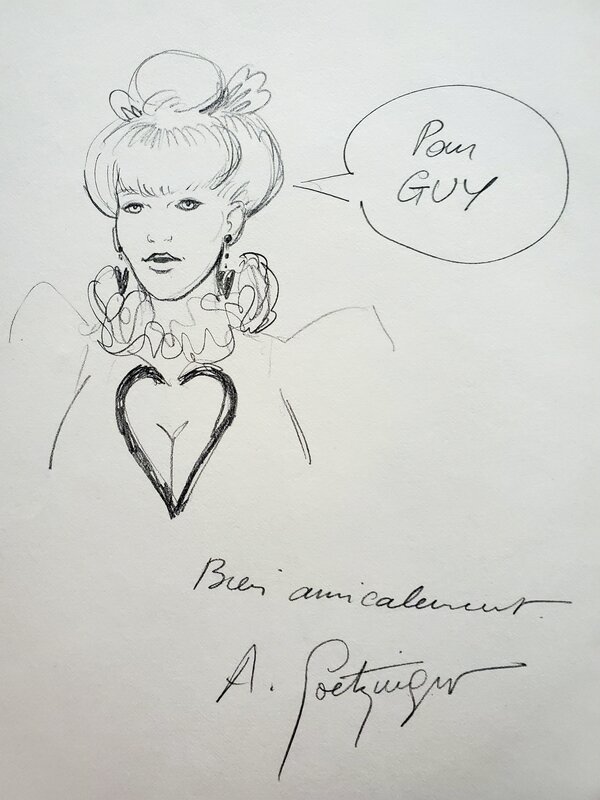 Pour
GUY
Bien amicalement
A. Goetzinger